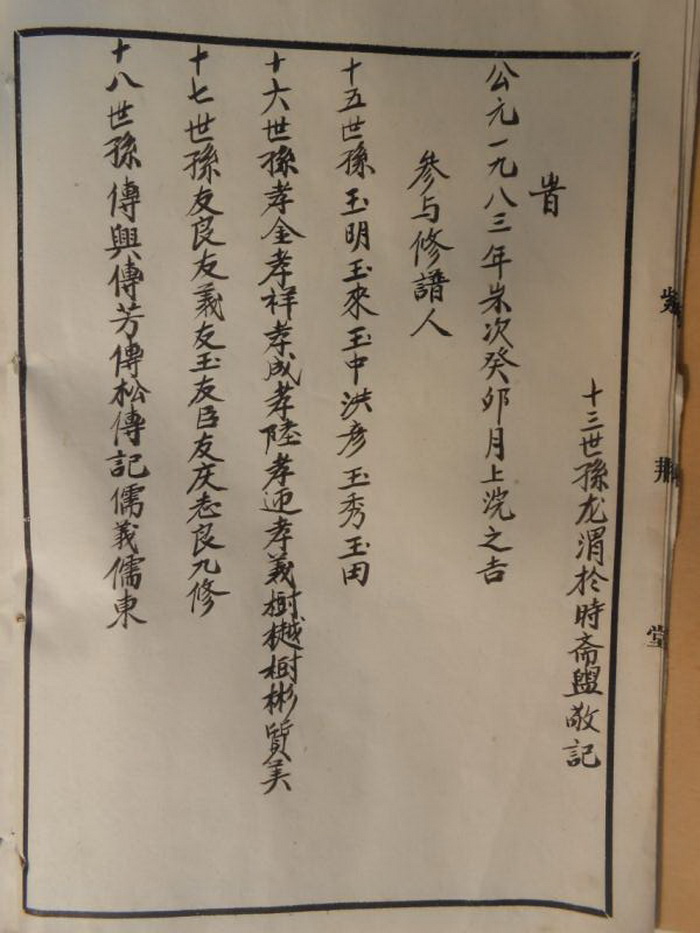 十三世孫龙渭於時斋盥敬記
旹
公元一九八三年岁次癸卯月上浣之吉
參与修譜人
十五世孫玉明玉來玉中洪彦玉秀玉田
十六世孫孝金孝祥孝成孝陸孝迎孝義樹樾樹彬賢美
十七世孫友良友義友玉友臣友庆志良九修
十八世孫傳興傳芳傳松傳記儒義儒東
堂